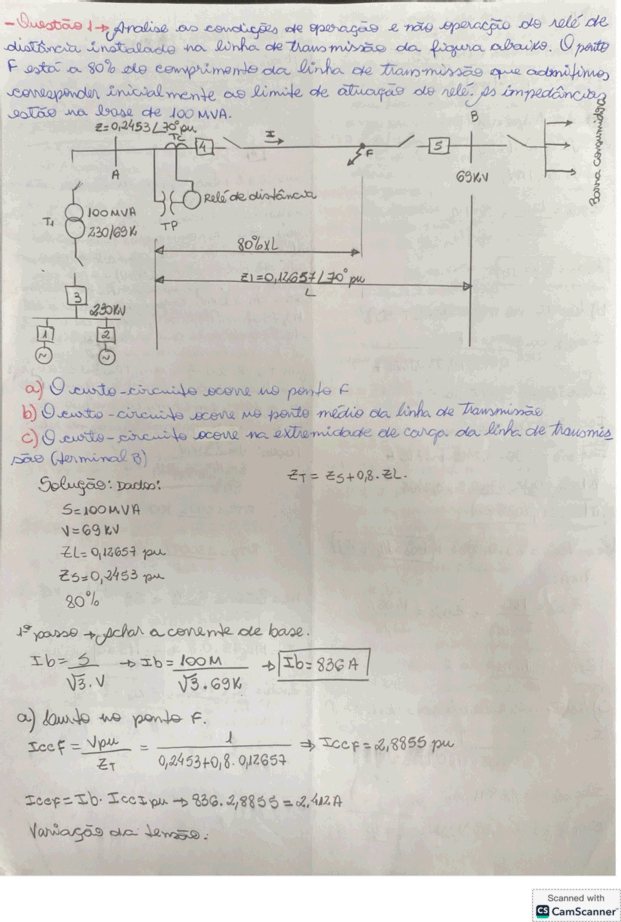 - Questão 1 → Analise as condições de operação e não operação do relé de
distância instalado na linha de transmissão da figura abaixo. O ponto
F está a 80% do comprimento da linha de transmissão que admitimos
corresponder inicialmente ao limite de atuação do relé. As impedâncias
estão na base de 100 MVA.
Z=0,2453/70° pu
TC
4
I
F
5
B
A
69KV
Barra consumidora
Relé de distância
TP
T1
100MVA
230/69K
80% x L
Z1=0,12657/70° pu
L
3
230KV
1
2
a) O curto-circuito ocorre no ponto F
b) O curto-circuito ocorre no ponto médio da linha de Transmissão
c) O curto-circuito ocorre na extremidade de carga da linha de transmis
são (terminal B)
Solução: Dados:
ZT = ZS+0,8.ZL.
S=100MVA
V=69KV
ZL=0,12657 pu
ZS=0,2453 pu
80%
1º passo → Achar a corrente de base.
Ib= S/√3.V → Ib= 100M/√3.69K → Ib=836A
a) Curto no ponto F.
IccF = Vpu/ZT = 1/0,2453+0,8.0,12657 ⇒ IccF=2,8855 pu
IccF= Ib. IccIpu → 836.2,8855=2.412A
Variação da tensão:
Scanned with
CS CamScanner